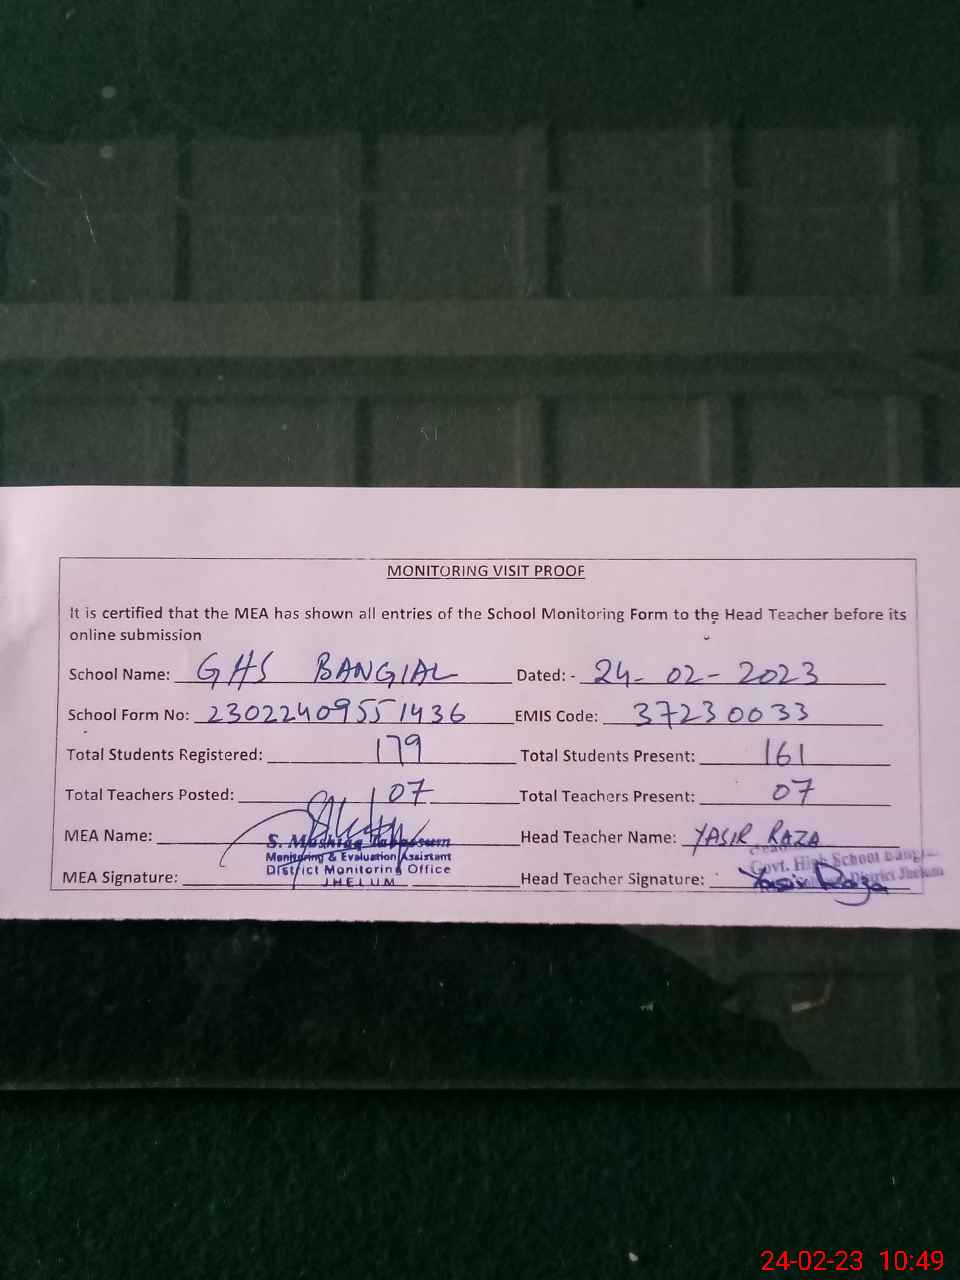 MONITORING VISIT PROOF
It is certified that the MEA has shown all entries of the School Monitoring Form to the Head Teacher before its
online submission
School Name: GHS BANGIAL Dated: - 24-02-2023
School Form No: 23022409551436 EMIS Code: 37230033
Total Students Registered: 179 Total Students Present: 161
Total Teachers Posted: 07 Total Teachers Present: 07
MEA Name: Head Teacher Name: YASIR RAZA
S. Mushtaq Tabassum
Monitoring & Evaluation Assistant
Govt. High School
District Monitoring Office
District Jhelum
MEA Signature: JHELUM Head Teacher Signature: Yasir Raza
24-02-23 10:49